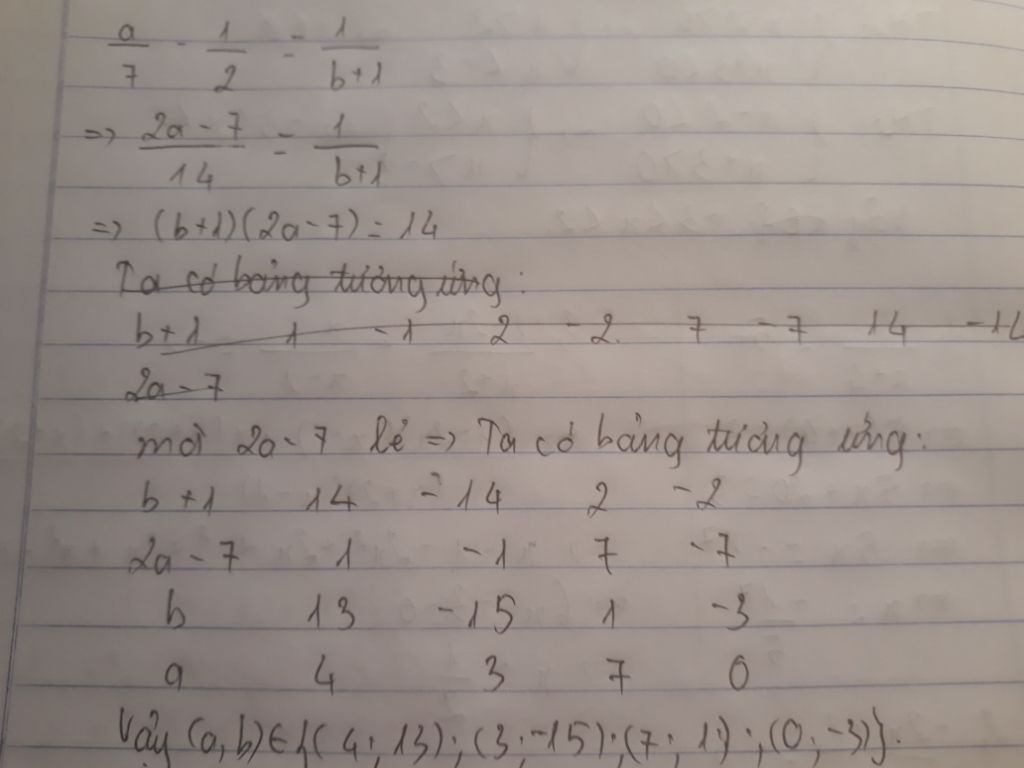 a/7 - 1/2 = 1/(b+1)
=> (2a-7)/14 = 1/(b+1)
=> (b+1)(2a-7) = 14
Ta có bảng tương ứng:
b+1 1 -1 2 -2 7 -7 14 -14
2a-7
mà 2a-7 lẻ => Ta có bảng tương ứng:
b+1 14 -14 2 -2
2a-7 1 -1 7 -7
b 13 -15 1 -3
a 4 3 7 0
Vậy (a,b)∈{(4;13);(3;-15);(7;1);(0;-3)}.